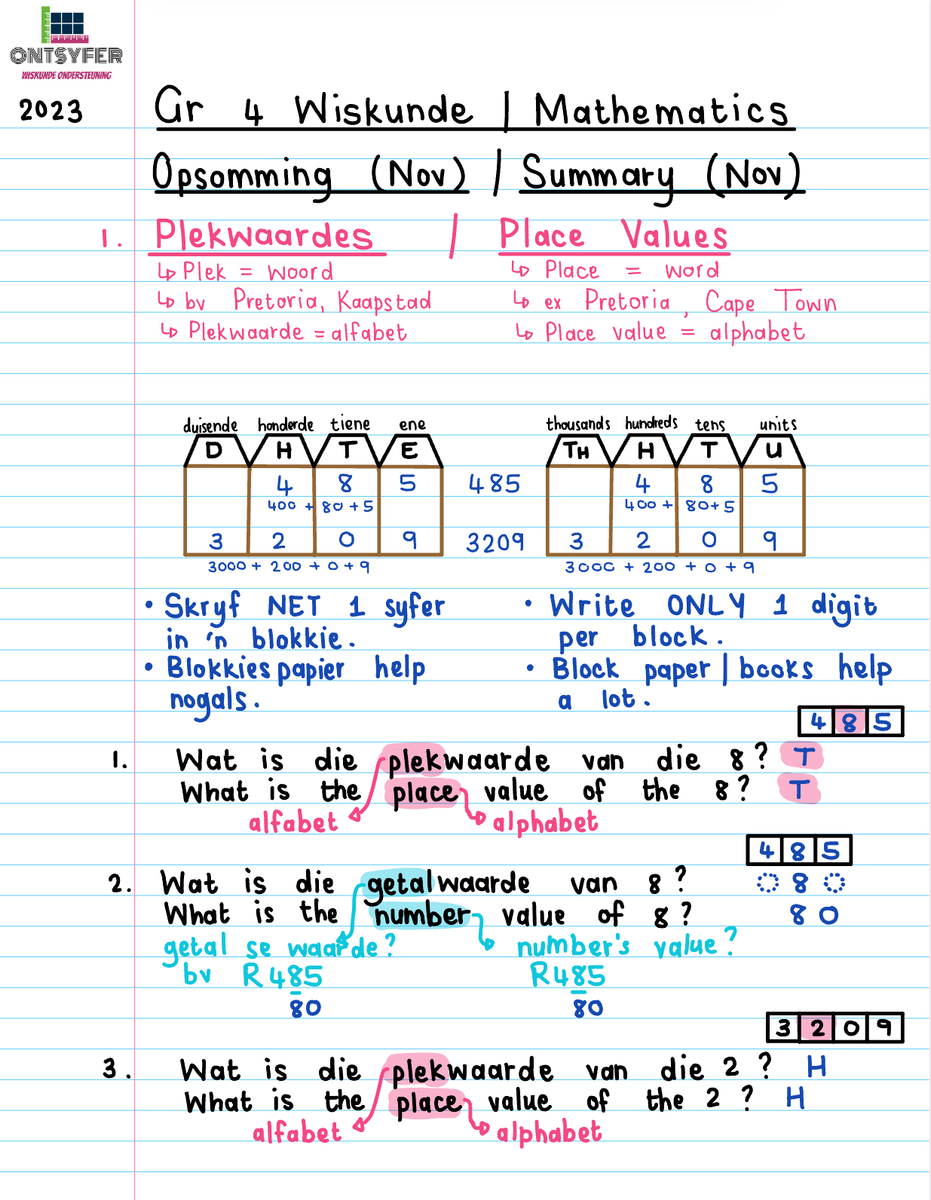 ONTSYFER
WISKUNDE ONDERSTEUNING
2023
Gr 4 Wiskunde | Mathematics
Opsomming (Nov) | Summary (Nov)
1. Plekwaardes | Place Values
↳ Plek = woord ↳ Place = word
↳ bv Pretoria, Kaapstad ↳ ex Pretoria, Cape Town
↳ Plekwaarde = alfabet ↳ Place value = alphabet
duisende honderde tiene ene thousands hundreds tens units
D H T E TH H T U
4 8 5 485 4 8 5
400 + 80 + 5 400 + 80 + 5
3 2 0 9 3209 3 2 0 9
3000 + 200 + 0 + 9 3000 + 200 + 0 + 9
• Skryf NET 1 syfer • Write ONLY 1 digit
in 'n blokkie. per block.
• Blokkies papier help • Block paper | books help
nogals. a lot.
4 8 5
1. Wat is die plekwaarde van die 8? T
What is the place value of the 8? T
alfabet alphabet
4 8 5
2. Wat is die getalwaarde van 8? 8
What is the number value of 8? 80
getal se waarde? number's value?
bv R485 R485
80 80
3 2 0 9
3. Wat is die plekwaarde van die 2? H
What is the place value of the 2? H
alfabet alphabet